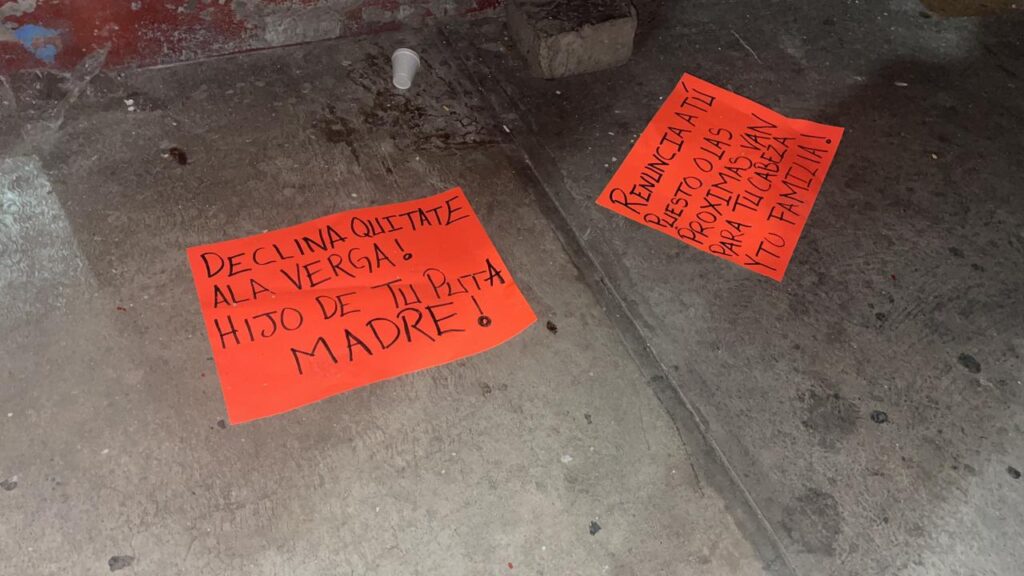 DECLINA QUITATE
ALA VERGA!
HIJO DE TU PUTTA
MADRE!
RENUNCIA A TÚ
PUESTO O LAS
PROXIMAS VAN
PARA TU CABEZA
Y TU FAMILIA!